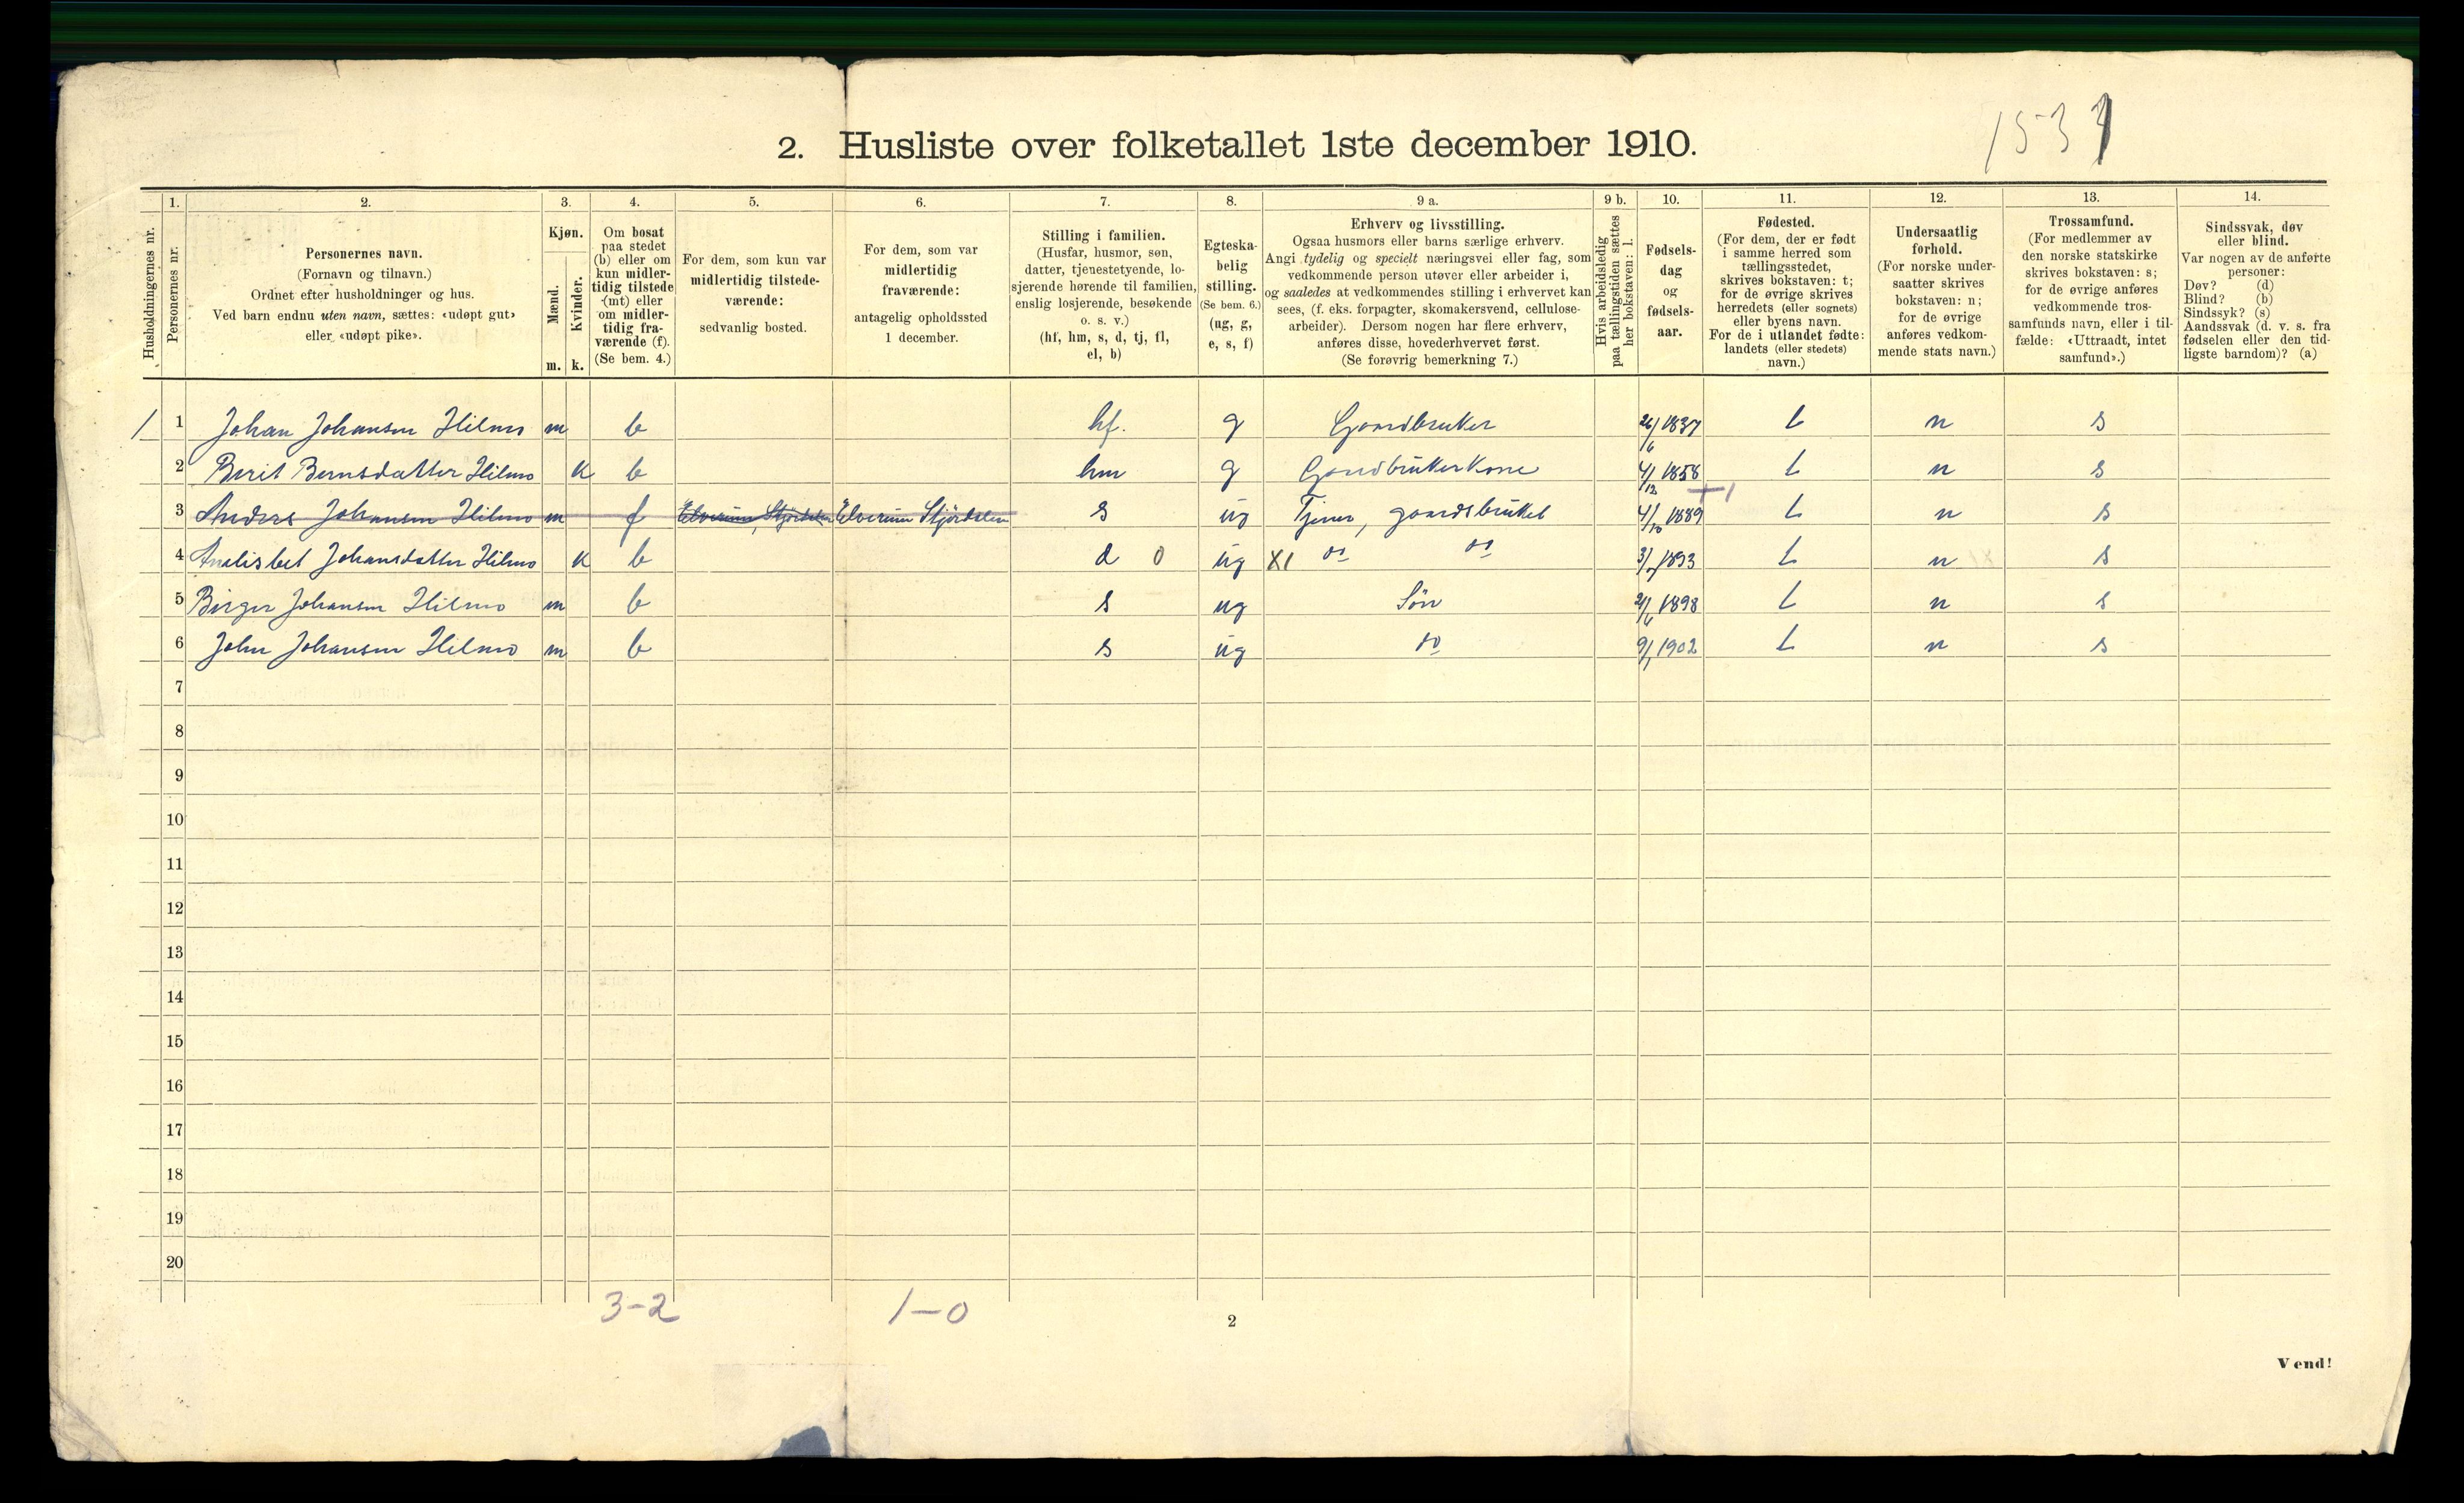 153
2. Husliste over folketallet 1ste december 1910.
Husholdningernes nr.
1.
Personernes nr.
2.
Personernes navn.
(Fornavn og tilnavn.)
Ordnet efter husholdninger og hus.
Ved barn endnu uten navn, sættes: «udøpt gut»
eller «udøpt pike».
3.
Kjøn.
Mænd.
Kvinder.
m. k.
4.
Om bosat
paa stedet
(b) eller om
kun midler-
tidig tilstede
(mt) eller
om midler-
tidig fra-
værende (f).
(Se bem. 4.)
5.
For dem, som kun var
midlertidig tilstede-
værende:
sedvanlig bosted.
6.
For dem, som var
midlertidig
fraværende:
antagelig opholdssted
1 december.
7.
Stilling i familien.
(Husfar, husmor, søn,
datter, tjenestetyende, lo-
sjerende hørende til familien,
enslig losjerende, besøkende
o. s. v.)
(hf, hm, s, d, tj, fl,
el, b)
8.
Egteska-
belig
stilling.
(Se bem. 6.)
(ug, g,
e, s, f)
9 a.
Erhverv og livsstilling.
Ogsaa husmors eller barns særlige erhverv.
Angi tydelig og specielt næringsvei eller fag, som
vedkommende person utøver eller arbeider i,
og saaledes at vedkommendes stilling i erhvervet kan
sees, (f. eks. forpagter, skomakersvend, cellulose-
arbeider). Dersom nogen har flere erhverv,
anføres disse, hovederhvervet først.
(Se forøvrig bemerkning 7.)
9 b.
Hvis arbeidsledig
paa tællingstiden sættes
her bokstaven: l.
10.
Fødsels-
dag
og
fødsels-
aar.
11.
Fødested.
(For dem, der er født
i samme herred som
tællingsstedet,
skrives bokstaven: t;
for de øvrige skrives
herredets (eller sognets)
eller byens navn.
For de i utlandet fødte:
landets (eller stedets)
navn.)
12.
Undersaatlig
forhold.
(For norske under-
saatter skrives
bokstaven: n;
for de øvrige
anføres vedkom-
mende stats navn.)
13.
Trossamfund.
(For medlemmer av
den norske statskirke
skrives bokstaven: s;
for de øvrige anføres
vedkommende tros-
samfunds navn, eller i til-
fælde: «Uttraadt, intet
samfund».)
14.
Sindssvak, døv
eller blind.
Var nogen av de anførte
personer:
Døv? (d)
Blind? (b)
Sindssyk? (s)
Aandssvak (d. v. s. fra
fødselen eller den tid-
ligste barndom)? (a)
/ 1 Johan Johansen Hilmo m b hf. g Gaardbruker 26/6 1837 t n s
2 Berit Berntsdatter Hilmo k b hm g Gaardbrukerkone 4/12 1858 t n s
3 Anders Johansen Hilmo m f Elverum, Stjördalen Elverum Stjördalen s ug Tjener, gaardsbruket 4/10 1889 +1 t n s
4 Analisbet Johansdatter Hilmo k b d 0 ug X1 do do 3/7 1893 t n s
5 Birger Johansen Hilmo m b s ug Sön 21/6 1898 t n s
6 John Johansen Hilmo m b s ug do 9/1 1902 t n s
7
8
9
10
11
12
13
14
15
16
17
18
19
20
3-2 1-0
2
Vend!